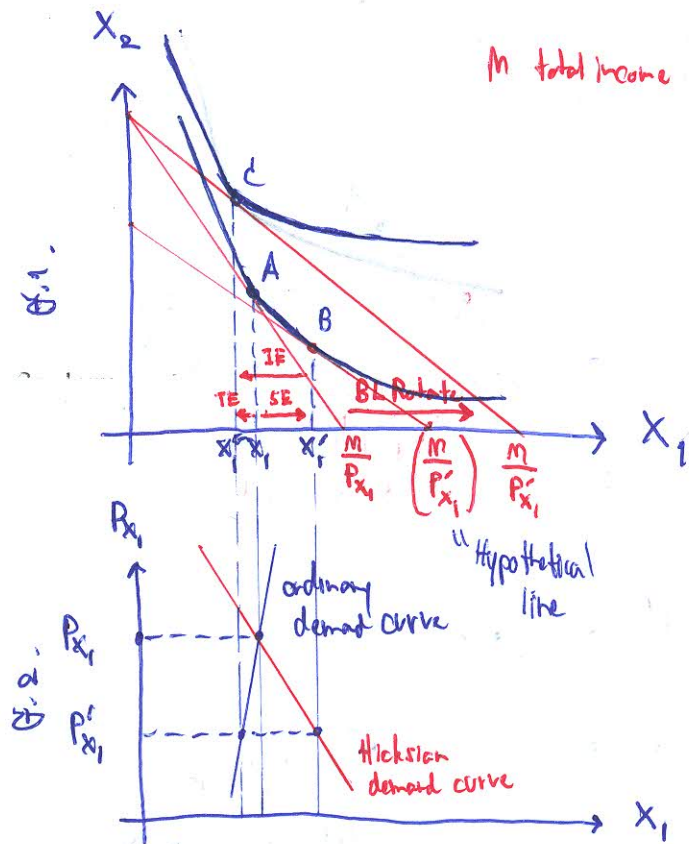 X₂
M total income
C
A
B
IE
TE SE
BL Rotate
X₁'' X₁ X₁' M/Pₓ₁ (M/P'ₓ₁) M/P'ₓ₁
X₁
"Hypothetical
line
Pₓ₁
ordinary
demad curve
Pₓ₁
P'ₓ₁
Hicksian
demand curve
X₁